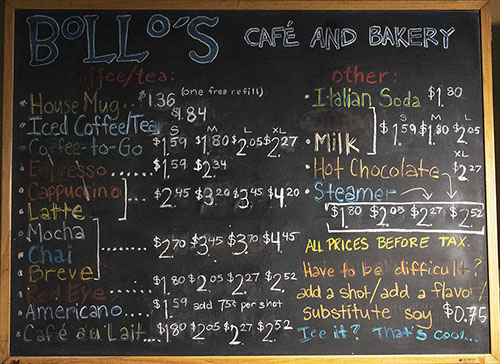 BOLLO'S CAFÉ AND BAKERY
coffee/tea:
House Mug... $1.36 (one free refill)
Iced Coffee/Tea $1.84
S M L XL
Coffee-to-Go $1.59 $1.80 $2.05 $2.27
Espresso........ $1.59 $2.34
Cappuccino
Latte ..... $2.45 $3.20 $3.45 $4.20
Mocha
Chai
Breve ...... $2.70 $3.45 $3.70 $4.45
Red Eye........ $1.80 $2.05 $2.27 $2.52
Americano...... $1.59 add 75¢ per shot
Café au Lait... $1.80 $2.05 $2.27 $2.52
other:
Italian Soda $1.80
S M L
Milk $1.59 $1.80 $2.05
XL
Hot Chocolate $2.27
Steamer
$1.80 $2.05 $2.27 $2.52
ALL PRICES BEFORE TAX.
Have to be difficult?
add a shot/add a flavor/
substitute soy $0.75
Ice it? That's cool...